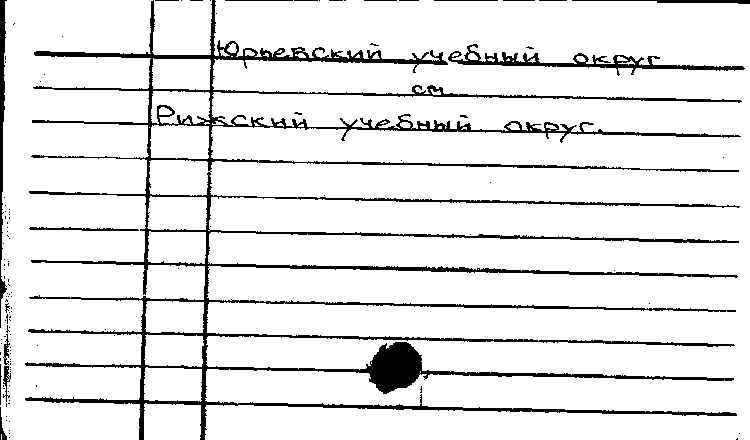 Юрьевский учебный округ
см.
Рижский учебный округ.